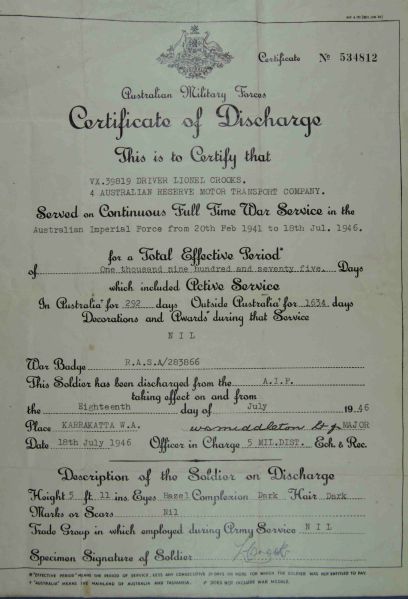 Certificate No 534812
Australian Military Forces
Certificate of Discharge
This is to Certify that
VX.39819 DRIVER LIONEL CROOKS.
4 AUSTRALIAN RESERVE MOTOR TRANSPORT COMPANY.
Served on Continuous Full Time War Service in the
Australian Imperial Force from 20th Feb 1941 to 18th Jul. 1946.
for a Total Effective Period*
of One thousand nine hundred and seventy five. Days
which included Active Service
In Australia† for 292 days Outside Australia† for 1634 days
Decorations and Awards° during that Service
NIL
War Badge R.A.S.A/283866
This Soldier has been discharged from the A.I.F.
taking effect on and from
the Eighteenth day of July 1946
Place KARRAKATTA W.A. MAJOR
Date 18th July 1946 Officer in Charge 5 MIL.DIST. Ech. & Rec.
Description of the Soldier on Discharge
Height 5 ft 11 ins Eyes Hazel Complexion Dark Hair Dark
Marks or Scars Nil
Trade Group in which employed during Army Service NIL
Specimen Signature of Soldier
* "EFFECTIVE PERIOD" MEANS THE PERIOD OF SERVICE, LESS ANY CONSECUTIVE 21 DAYS OR MORE FOR WHICH THE SOLDIER WAS NOT ENTITLED TO PAY.
† "AUSTRALIA" MEANS THE MAINLAND OF AUSTRALIA AND TASMANIA. ° DOES NOT INCLUDE WAR MEDALS.